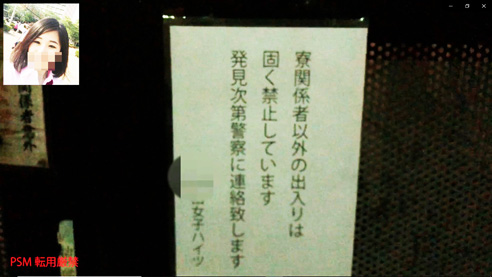 寮関係者以外の出入りは
固く禁止しています
発見次第警察に連絡致します
女子ハイツ
関係者以外
PSM 転用厳禁